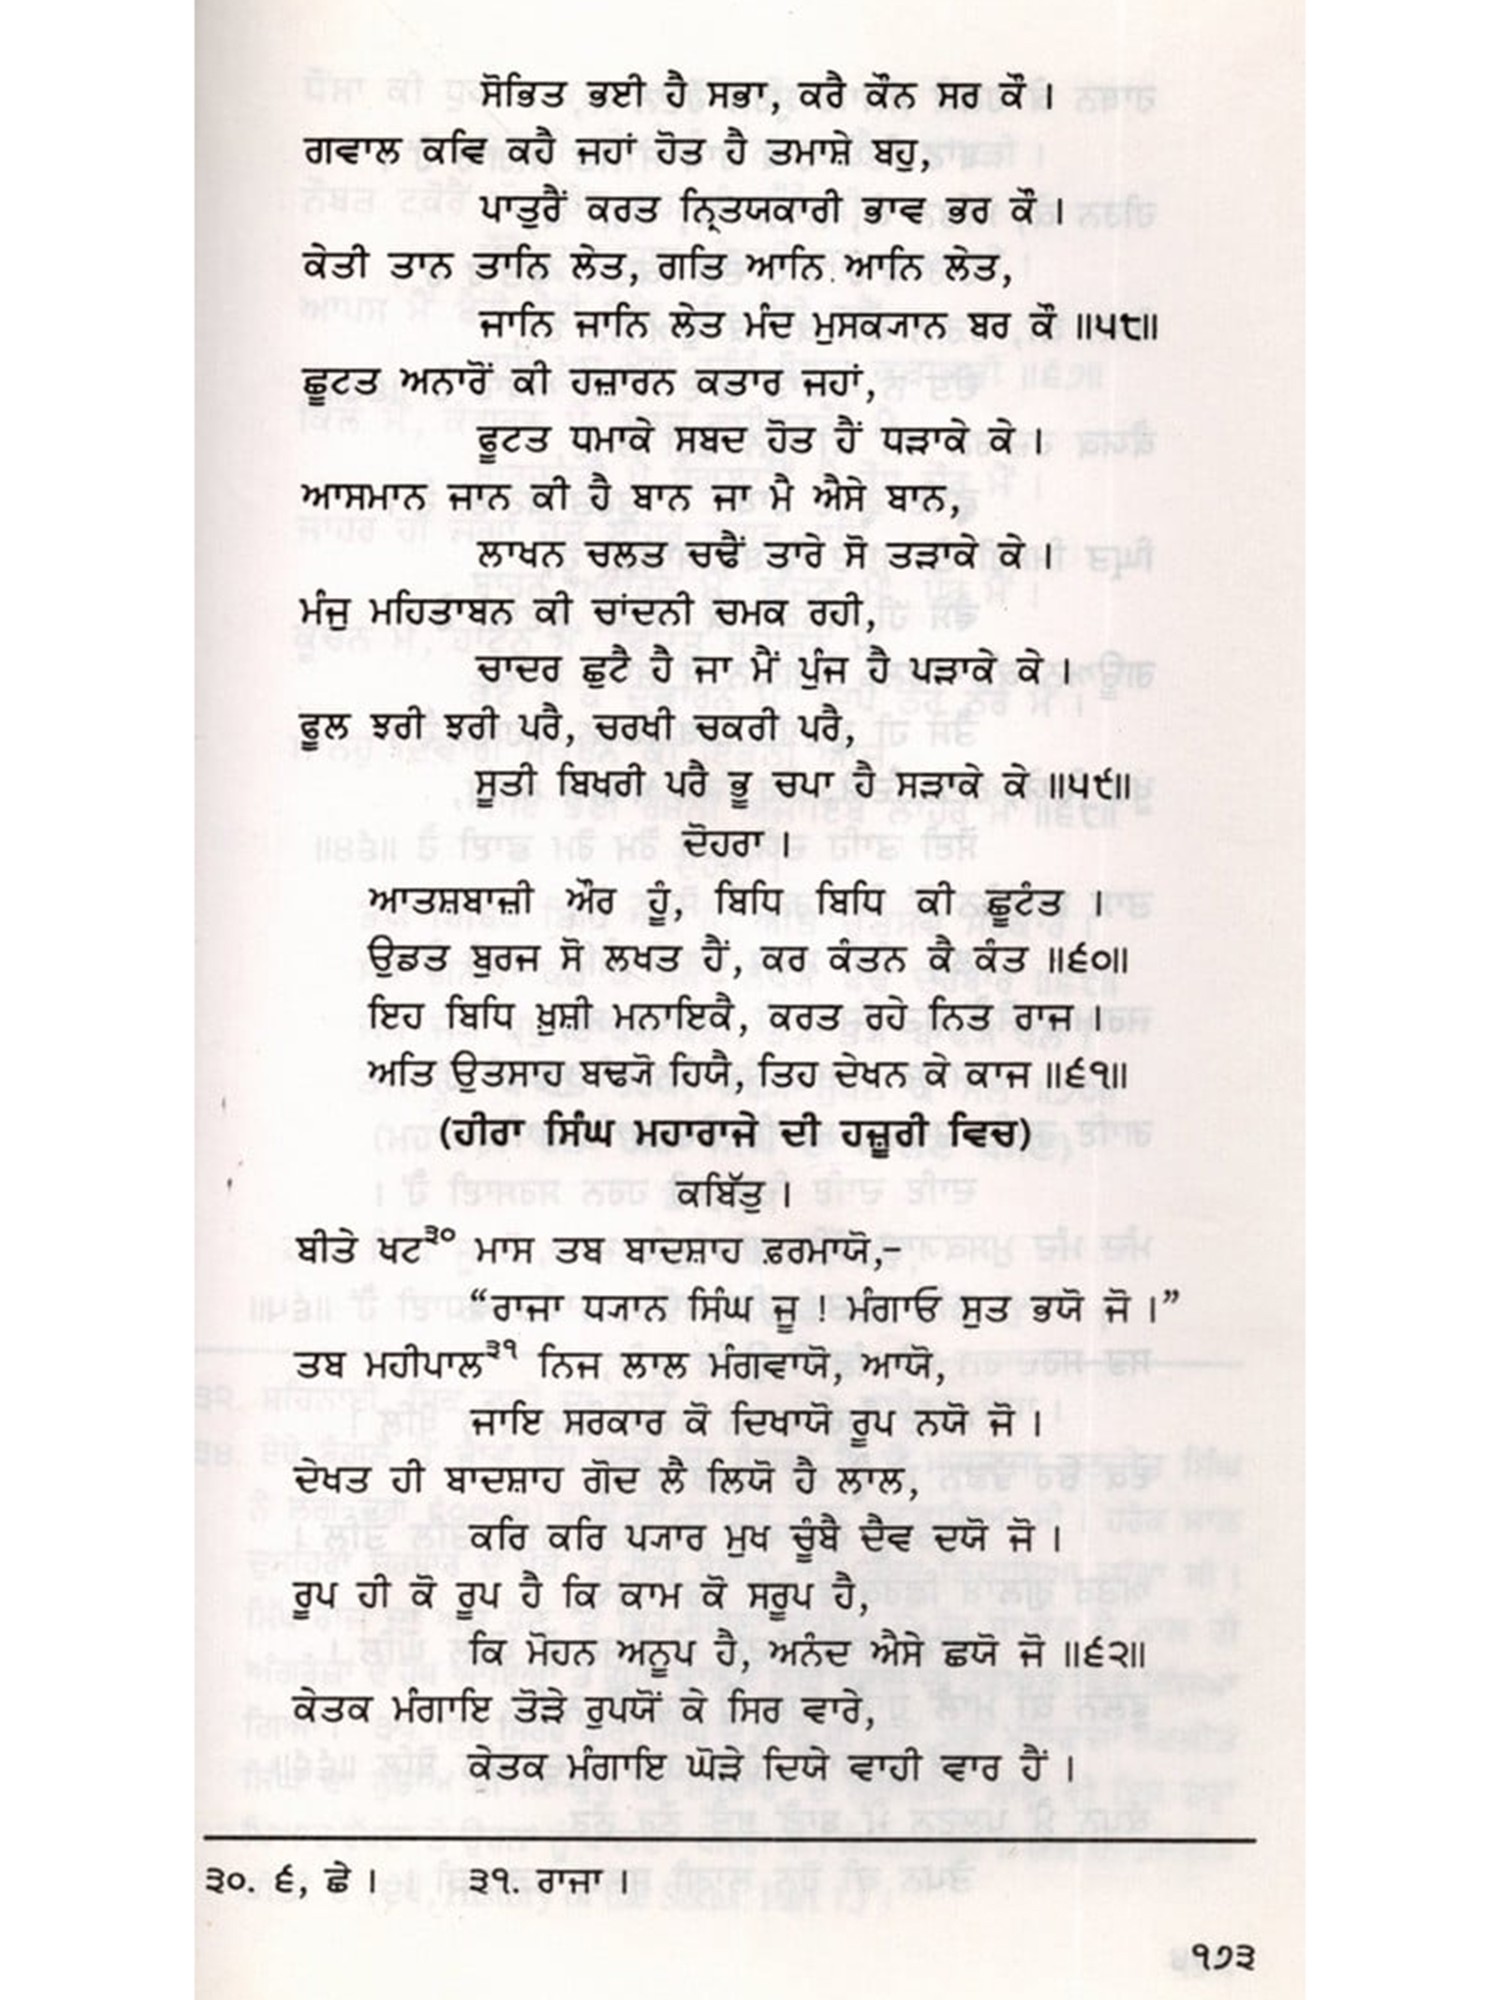 ਸੋਭਿਤ ਭਈ ਹੈ ਸਭਾ, ਕਰੈ ਕੌਨ ਸਰ ਕੌ ।
ਗਵਾਲ ਕਵਿ ਕਹੈ ਜਹਾਂ ਹੋਤ ਹੈ ਤਮਾਸ਼ੇ ਬਹੁ,
ਪਾਤੁਰੈਂ ਕਰਤ ਨ੍ਰਿਤਯਕਾਰੀ ਭਾਵ ਭਰ ਕੌ ।
ਕੇਤੀ ਤਾਨ ਤਾਨਿ ਲੇਤ, ਗਤਿ ਆਨਿ ਆਨਿ ਲੇਤ,
ਜਾਨਿ ਜਾਨਿ ਲੇਤ ਮੰਦ ਮੁਸਕ੍ਯਾਨ ਬਰ ਕੌ ॥੫੮॥
ਛੂਟਤ ਅਨਾਰੋਂ ਕੀ ਹਜ਼ਾਰਨ ਕਤਾਰ ਜਹਾਂ,
ਫੂਟਤ ਧਮਾਕੇ ਸਬਦ ਹੋਤ ਹੈਂ ਧੜਾਕੇ ਕੇ ।
ਆਸਮਾਨ ਜਾਨ ਕੀ ਹੈ ਬਾਨ ਜਾ ਮੈ ਐਸੇ ਬਾਨ,
ਲਾਖਨ ਚਲਤ ਚਢੈਂ ਤਾਰੇ ਸੋ ਤੜਾਕੇ ਕੇ ।
ਮੰਜੁ ਮਹਿਤਾਬਨ ਕੀ ਚਾਂਦਨੀ ਚਮਕ ਰਹੀ,
ਚਾਦਰ ਛੁਟੈ ਹੈ ਜਾ ਮੈਂ ਪੁੰਜ ਹੈ ਪੜਾਕੇ ਕੇ ।
ਫੂਲ ਝਰੀ ਝਰੀ ਪਰੈ, ਚਰਖੀ ਚਕਰੀ ਪਰੈ,
ਸੂਤੀ ਬਿਖਰੀ ਪਰੈ ਭੂ ਚਪਾ ਹੈ ਸੜਾਕੇ ਕੇ ॥੫੯॥
ਦੋਹਰਾ ।
ਆਤਸ਼ਬਾਜ਼ੀ ਔਰ ਹੂੰ, ਬਿਧਿ ਬਿਧਿ ਕੀ ਛੂਟੰਤ ।
ਉਡਤ ਬੁਰਜ ਸੋ ਲਖਤ ਹੈਂ, ਕਰ ਕੰਤਨ ਕੈ ਕੰਤ ॥੬੦॥
ਇਹ ਬਿਧਿ ਖ਼ੁਸ਼ੀ ਮਨਾਇਕੈ, ਕਰਤ ਰਹੇ ਨਿਤ ਰਾਜ ।
ਅਤਿ ਉਤਸਾਹ ਬਢ੍ਯੋ ਹਿਯੈ, ਤਿਹ ਦੇਖਨ ਕੇ ਕਾਜ ॥੬੧॥
(ਹੀਰਾ ਸਿੰਘ ਮਹਾਰਾਜੇ ਦੀ ਹਜ਼ੂਰੀ ਵਿਚ)
ਕਬਿੱਤੁ ।
ਬੀਤੇ ਖਟ੩੦ ਮਾਸ ਤਬ ਬਾਦਸ਼ਾਹ ਫ਼ਰਮਾਯੋ,–
“ਰਾਜਾ ਧ੍ਯਾਨ ਸਿੰਘ ਜੂ ! ਮੰਗਾਓ ਸੁਤ ਭਯੋ ਜੋ ।”
ਤਬ ਮਹੀਪਾਲ੩੧ ਨਿਜ ਲਾਲ ਮੰਗਵਾਯੋ, ਆਯੋ,
ਜਾਇ ਸਰਕਾਰ ਕੋ ਦਿਖਾਯੋ ਰੂਪ ਨਯੋ ਜੋ ।
ਦੇਖਤ ਹੀ ਬਾਦਸ਼ਾਹ ਗੋਦ ਲੈ ਲਿਯੋ ਹੈ ਲਾਲ,
ਕਰਿ ਕਰਿ ਪ੍ਯਾਰ ਮੁਖ ਚੂੰਬੈ ਦੈਵ ਦਯੋ ਜੋ ।
ਰੂਪ ਹੀ ਕੋ ਰੂਪ ਹੈ ਕਿ ਕਾਮ ਕੋ ਸਰੂਪ ਹੈ,
ਕਿ ਮੋਹਨ ਅਨੂਪ ਹੈ, ਅਨੰਦ ਐਸੇ ਛਯੋ ਜੋ ॥੬੨॥
ਕੇਤਕ ਮੰਗਾਇ ਤੋੜੇ ਰੁਪਯੋਂ ਕੇ ਸਿਰ ਵਾਰੇ,
ਕੇਤਕ ਮੰਗਾਇ ਘੋੜੇ ਦਿਯੇ ਵਾਹੀ ਵਾਰ ਹੈਂ ।
੩੦. ੬, ਛੇ । ੩੧. ਰਾਜਾ ।
੧੭੩